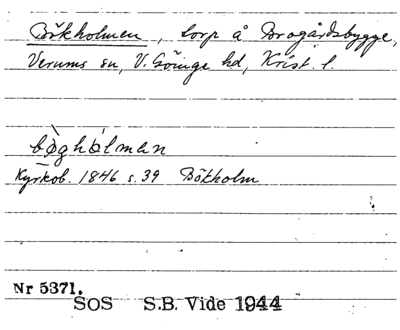 Bökholmen, torp å Brogårdsbygge,
Verums sn, V. Göinge hd, Krist. l.
bø̀ghólmən
Kyrkob. 1846 s. 39 Bökholm
Nr 5371.
SOS S.B. Vide 1944